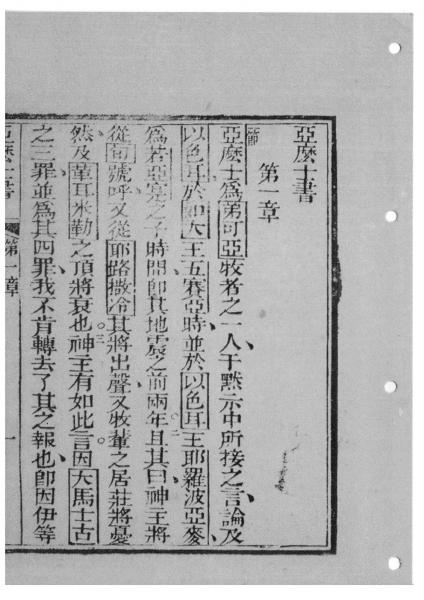 亞麽士書
第一章
節亞麽士爲第可亞牧者之一人于黙示中所接之言論及
以色耳於如大王五賽亞時並於以色耳王耶羅波亞麥
爲若亞塞之子時間卽其地震之前兩年且其曰神主將
從旬號呼又從耶路撒冷其將出聲又牧輩之居莊將憂
然及葦耳米勒之頂將衰也神主有如此言因大馬士古
之三罪並爲其四罪我不肯轉去了其之報也卽因伊等
亞麽士書 第一章 一